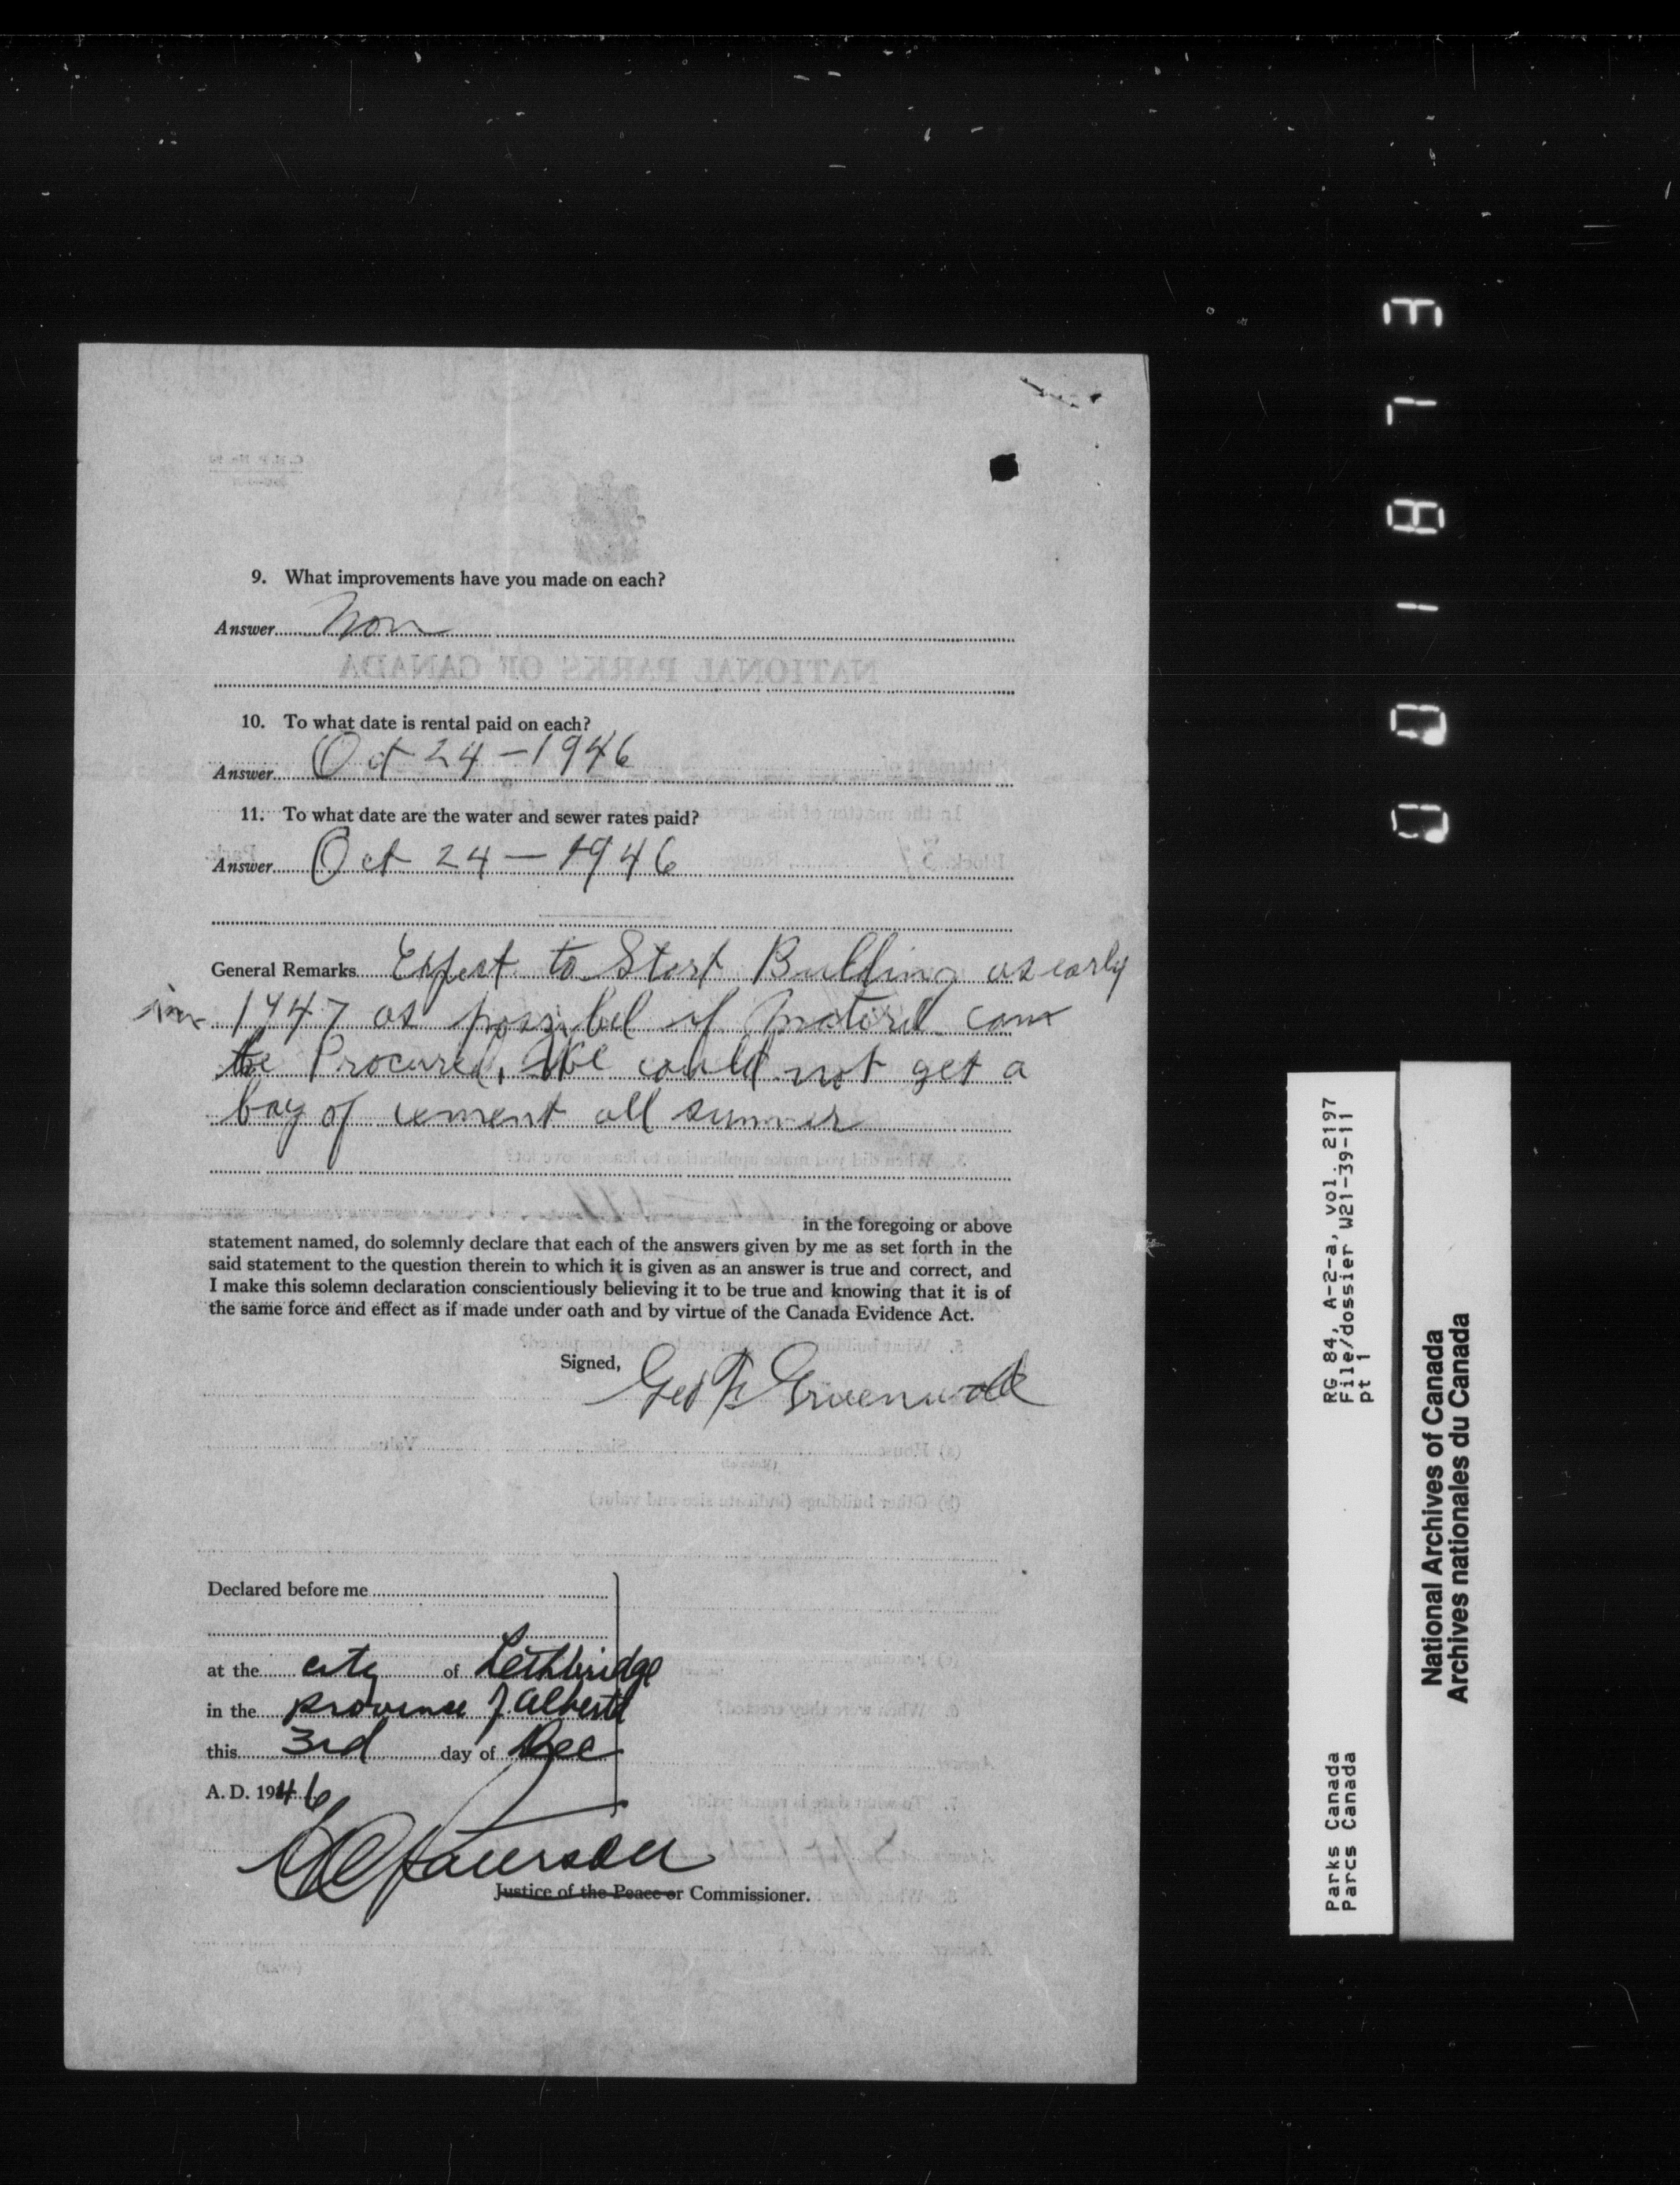 9. What improvements have you made on each?
Answer Non
10. To what date is rental paid on each?
Answer Oct 24 - 1946
11. To what date are the water and sewer rates paid?
Answer Oct 24 - 1946
General Remarks Expect to Start Building as early
in 1947 as possibel if matiril can
be Procured, We could not get a
bag of cement all summer
in the foregoing or above
statement named, do solemnly declare that each of the answers given by me as set forth in the
said statement to the question therein to which it is given as an answer is true and correct, and
I make this solemn declaration conscientiously believing it to be true and knowing that it is of
the same force and effect as if made under oath and by virtue of the Canada Evidence Act.
Signed, Geo F Gruenwald
Declared before me
at the city of Lethbridge
in the province of Alberta
this 3rd day of Dec
A. D. 1946
Justice of the Peace or Commissioner.
RG 84, A-2-a, vol. 2197
File/dossier W21-39-11
pt 1
Parks Canada
Parcs Canada
National Archives of Canada
Archives nationales du Canada